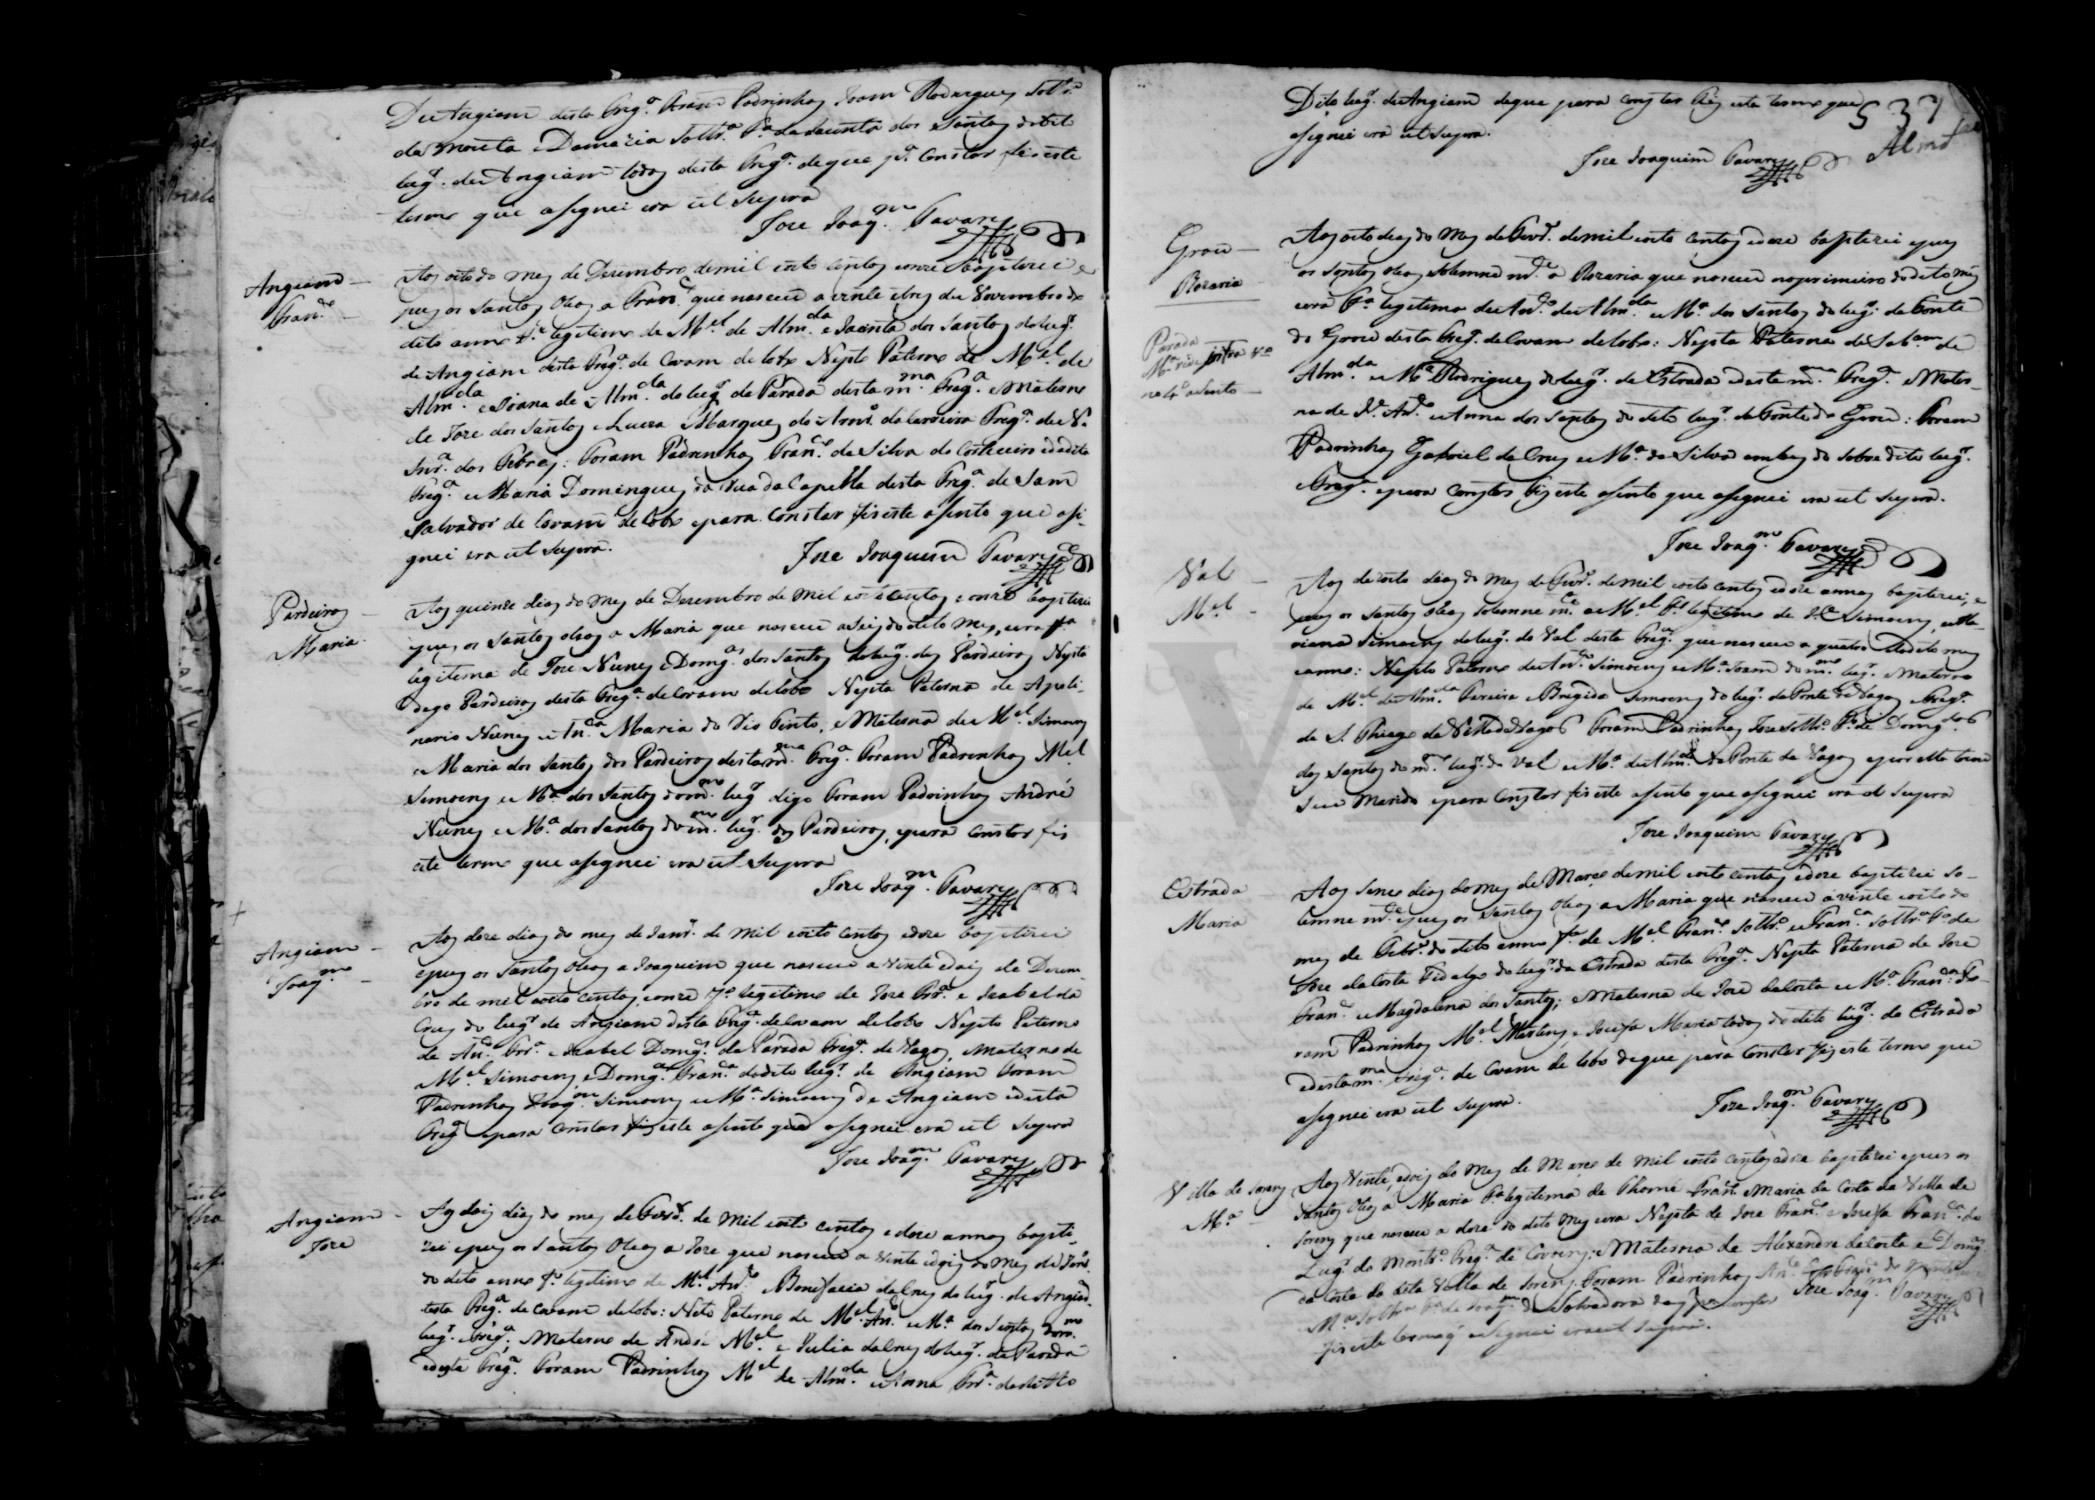 De Angiam desta Freg.ª Foram Padrinhos Joam Rodrigues Solt.ro
da Mouta e Damazia Soltr.ª F.ª de Jacinta dos Santos do dito
lug.r de Angiam todos desta Freg.ª de que p.ª constar fis este
termo que asignei era ut supra
Joze Joaq.m Tavares
Angiam
Fran.co
Aos oito do mes de Dezembro de mil oito centos e onze baptizei e
pus os santos oleos a Fran.co que nasceu a vinte e tres de Novembro do
dito anno f.º legitimo de M.el de Alm.da e Jacinta dos Santos do lug.r
de Angiam desta Freg.ª de Covam do lobo Neptto Paterno de M.el de
Alm.da e Joana de Alm.da do lug.r da Parada desta m.ma Freg.ª e Materno
de Joze dos Santos e Luiza Marques do
Snr.ª dos Febres: Foram Padrinhos Fran.co da Silva do Corticeiro
Freg.ª e Maria Domingues da rua da Capella desta Freg.ª de Sam
Salvador de Covam do Lobo e para constar fis este asento que asi-
gnei era ut supra.
Joze Joaquim Tavares
Pardeiros
Maria
Aos quinze dias do mes de Dezembro de mil oito centos e onze baptizei
e pus os santos oleos a Maria que nasceu a seis do dito mes, e era f.ª
legitima de Joze Nunes e Domg.ª dos Santos do lug.r dos Pardeiros Neptta
digo Pardeiros desta Freg.ª de Covam do lobo Neptta Paterna de Apoli-
nario Nunes e Maria do Rio Tinto, e Materna de M.el Simoens
e Maria dos Santos dos Pardeiros desta m.ma Freg.ª Foram Padrinhos M.el
Simoens e M.ª dos Santos do m.mo lug.r digo Foram Padrinhos André
Nunes e M.ª dos Santos do m.mo lug.r dos Pardeiros, e para constar fis
este termo que asignei era ut supra
Joze Joaq.m Tavares
Angiam
Joaq.m
Aos doze dias do mes de Janr.º de mil oito centos e doze baptizei
e pus os santos oleos a Joaquim que nasceu a vinte e dois de Dezem-
bro de mil oito centos e onze f.º legitimo de Joze Frr.ª e Izabel da
Crus do lug.r de Angiam desta Freg.ª de Covam do lobo Neptto Paterno
de An.to Frr.ª e Izabel Domg.s da Parada Freg.ª de Vagos, Materno de
M.el Simoens e Domg.ª Fran.ca do dito lug.r de Angiam Foram
Padrinhos Joaq.m Simoens e M.ª Simoens de Angiam e desta
Freg.ª e para constar fis este asento que asignei era ut supra
Joze Joaq.m Tavares
Angiam
Joze
Aos dois dias do mes de Fevr.º de mil oito centos e doze annos bapti-
zei e pus os santos oleos a Joze que nasceu a vinte e dois do mes de Janr.º
do dito anno f.º legitimo de M.el An.to e Bonifacia da Crus do lug.r de Angiam
desta Freg.ª de Covam do lobo: Neto Paterno de M.el An.to e M.ª dos Santos do m.mo
lug.r e Freg.ª, Materno de André M.el e Julia da Crus do lug.r da Parada
e desta Freg.ª Foram Padrinhos M.el de Alm.da e Anna Frr.ª do ditto
Dito lug.r de Angiam de que para constar fis este termo que
asignei era ut supra.
Joze Joaquim Tavares
537
Alm.da
Grou
Rozaria
Aos oito dias do mes de Fevr.º de mil oito centos e doze baptizei e pus
os santos oleos solemne m.te a Rozaria que nasceu no primeiro do dito mes
e era f.ª legitima de An.to de Alm.da e M.ª dos Santos do lug.r da Fonte
do Grou desta Freg.ª de Covam do lobo: Neptta Paterna de Seb.am de
Alm.da e M.ª Rodrigues do lug.r da Estrada e desta m.ma Freg.ª e Mater-
na de J.e An.to e Anna dos Santos do dito lug.r da Fonte do Grou: Foram
Padrinhos Gabriel da Crus e M.ª da Silva ambos do sobredito lug.r
e Freg.ª e para constar fis este asento que asignei era ut supra.
Joze Joaq.m Tavares
Parada
Val
M.el
Aos dezoito dias do mes de Fevr.º de mil oito centos e doze annos baptizei, e
pus os santos oleos solemne m.te a M.el f.º legitimo de J.e Simoens, e Ma-
riana Simoens do lug.r do Val desta Freg.ª que nasceu a quatro do dito mes
e anno: Neptto Paterno de An.to Simoens e M.ª Joam do m.mo lug.r e Materno
de M.el de Alm.da Pereira e Brigida Simoens do lug.r da Ponte de Vagos Freg.ª
de S. Thiago da Villa de Vagos Foram Padrinhos Joze Soltr.º f.º de Domg.os
dos Santos do m.mo lug.r do Val e M.ª de Alm.da da Ponte de Vagos e por ella tocou
seu Marido e para constar fis este asento que asignei era ut supra
Joze Joaquim Tavares
Estrada
Maria
Aos sinco dias do mes de Março de mil oito centos e doze baptizei so-
lemne m.te e pus os santos oleos a Maria que nasceu a vinte e oito do
mes de Febr.º do dito anno f.ª de M.el Fran.co Soltr.º e Fran.ca Soltr.ª f.ª de
Joze da Costa Fidalgo do lug.r da Estrada desta Freg.ª Neptta Paterna de Joze
Fran.co e Magdalena dos Santos; e Materna de Joze da Costa e M.ª Fran.ca Fo-
ram Padrinhos M.el Martins, e Josefa Maria todos do dito lug.r da Estrada
e desta m.ma Freg.ª de Covam do lobo de que para constar fis este termo que
asignei era ut supra.
Joze Joaq.m Tavares
Villa de Sorens
M.ª
Aos vinte e dois do mes de Março de mil oito centos e doze baptizei e pus os
santos oleos a Maria f.ª legitima de Thomé Fran.co e Maria da Costa da Villa de
Sorens que nasceu a doze do dito mes e era Neptta de Joze Fran.co e Josefa Fran.ca do
Lug.r do Freg.ª de Covoens: e Materna de Alexandre da Costa e Domg.as
da Costa da dita Villa de Sorens Foram Padrinhos An.to
M.ª Soltr.ª f.ª de Joaq.m de Salvadora
fis este termo q asignei era ut supra.
Joze Joaq.m Tavares